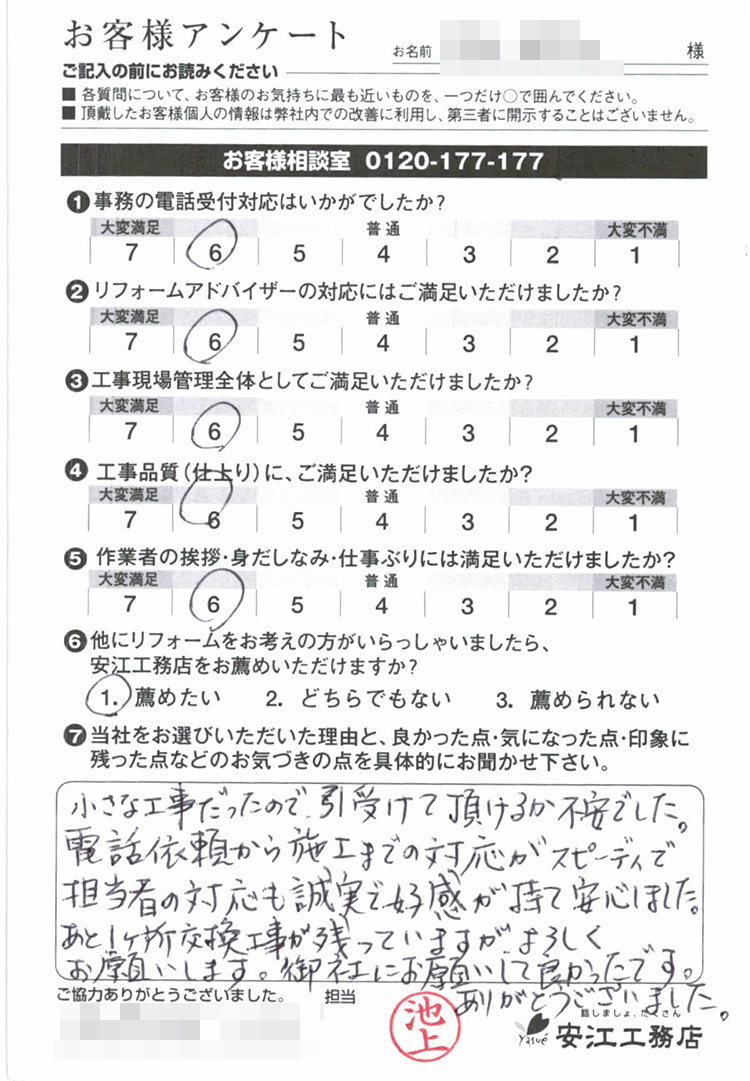 お客様アンケート
お名前 様
ご記入の前にお読みください
■ 各質問について、お客様のお気持ちに最も近いものを、一つだけ○で囲んでください。
■ 頂戴したお客様個人の情報は弊社内での改善に利用し、第三者に開示することはございません。
お客様相談室 0120-177-177
❶ 事務の電話受付対応はいかがでしたか?
大変満足 普通 大変不満
7 6 5 4 3 2 1
❷ リフォームアドバイザーの対応にはご満足いただけましたか?
大変満足 普通 大変不満
7 6 5 4 3 2 1
❸ 工事現場管理全体としてご満足いただけましたか?
大変満足 普通 大変不満
7 6 5 4 3 2 1
❹ 工事品質(仕上り)に、ご満足いただけましたか?
大変満足 普通 大変不満
7 6 5 4 3 2 1
❺ 作業者の挨拶・身だしなみ・仕事ぶりには満足いただけましたか?
大変満足 普通 大変不満
7 6 5 4 3 2 1
❻ 他にリフォームをお考えの方がいらっしゃいましたら、
安江工務店をお薦めいただけますか?
1. 薦めたい 2. どちらでもない 3. 薦められない
❼ 当社をお選びいただいた理由と、良かった点・気になった点・印象に
残った点などのお気づきの点を具体的にお聞かせ下さい。
小さな工事だったので、引受けて頂けるか不安でした。
電話依頼から施工までの対応がスピーディで
担当者の対応も誠実で好感が持て安心しました。
あと1ヶ所交換工事が残っていますがよろしく
お願いします。御社にお願いして良かったです。
ありがとうございました。
ご協力ありがとうございました。 担当
池上
話しましょ、たくさん
Yasué 安江工務店